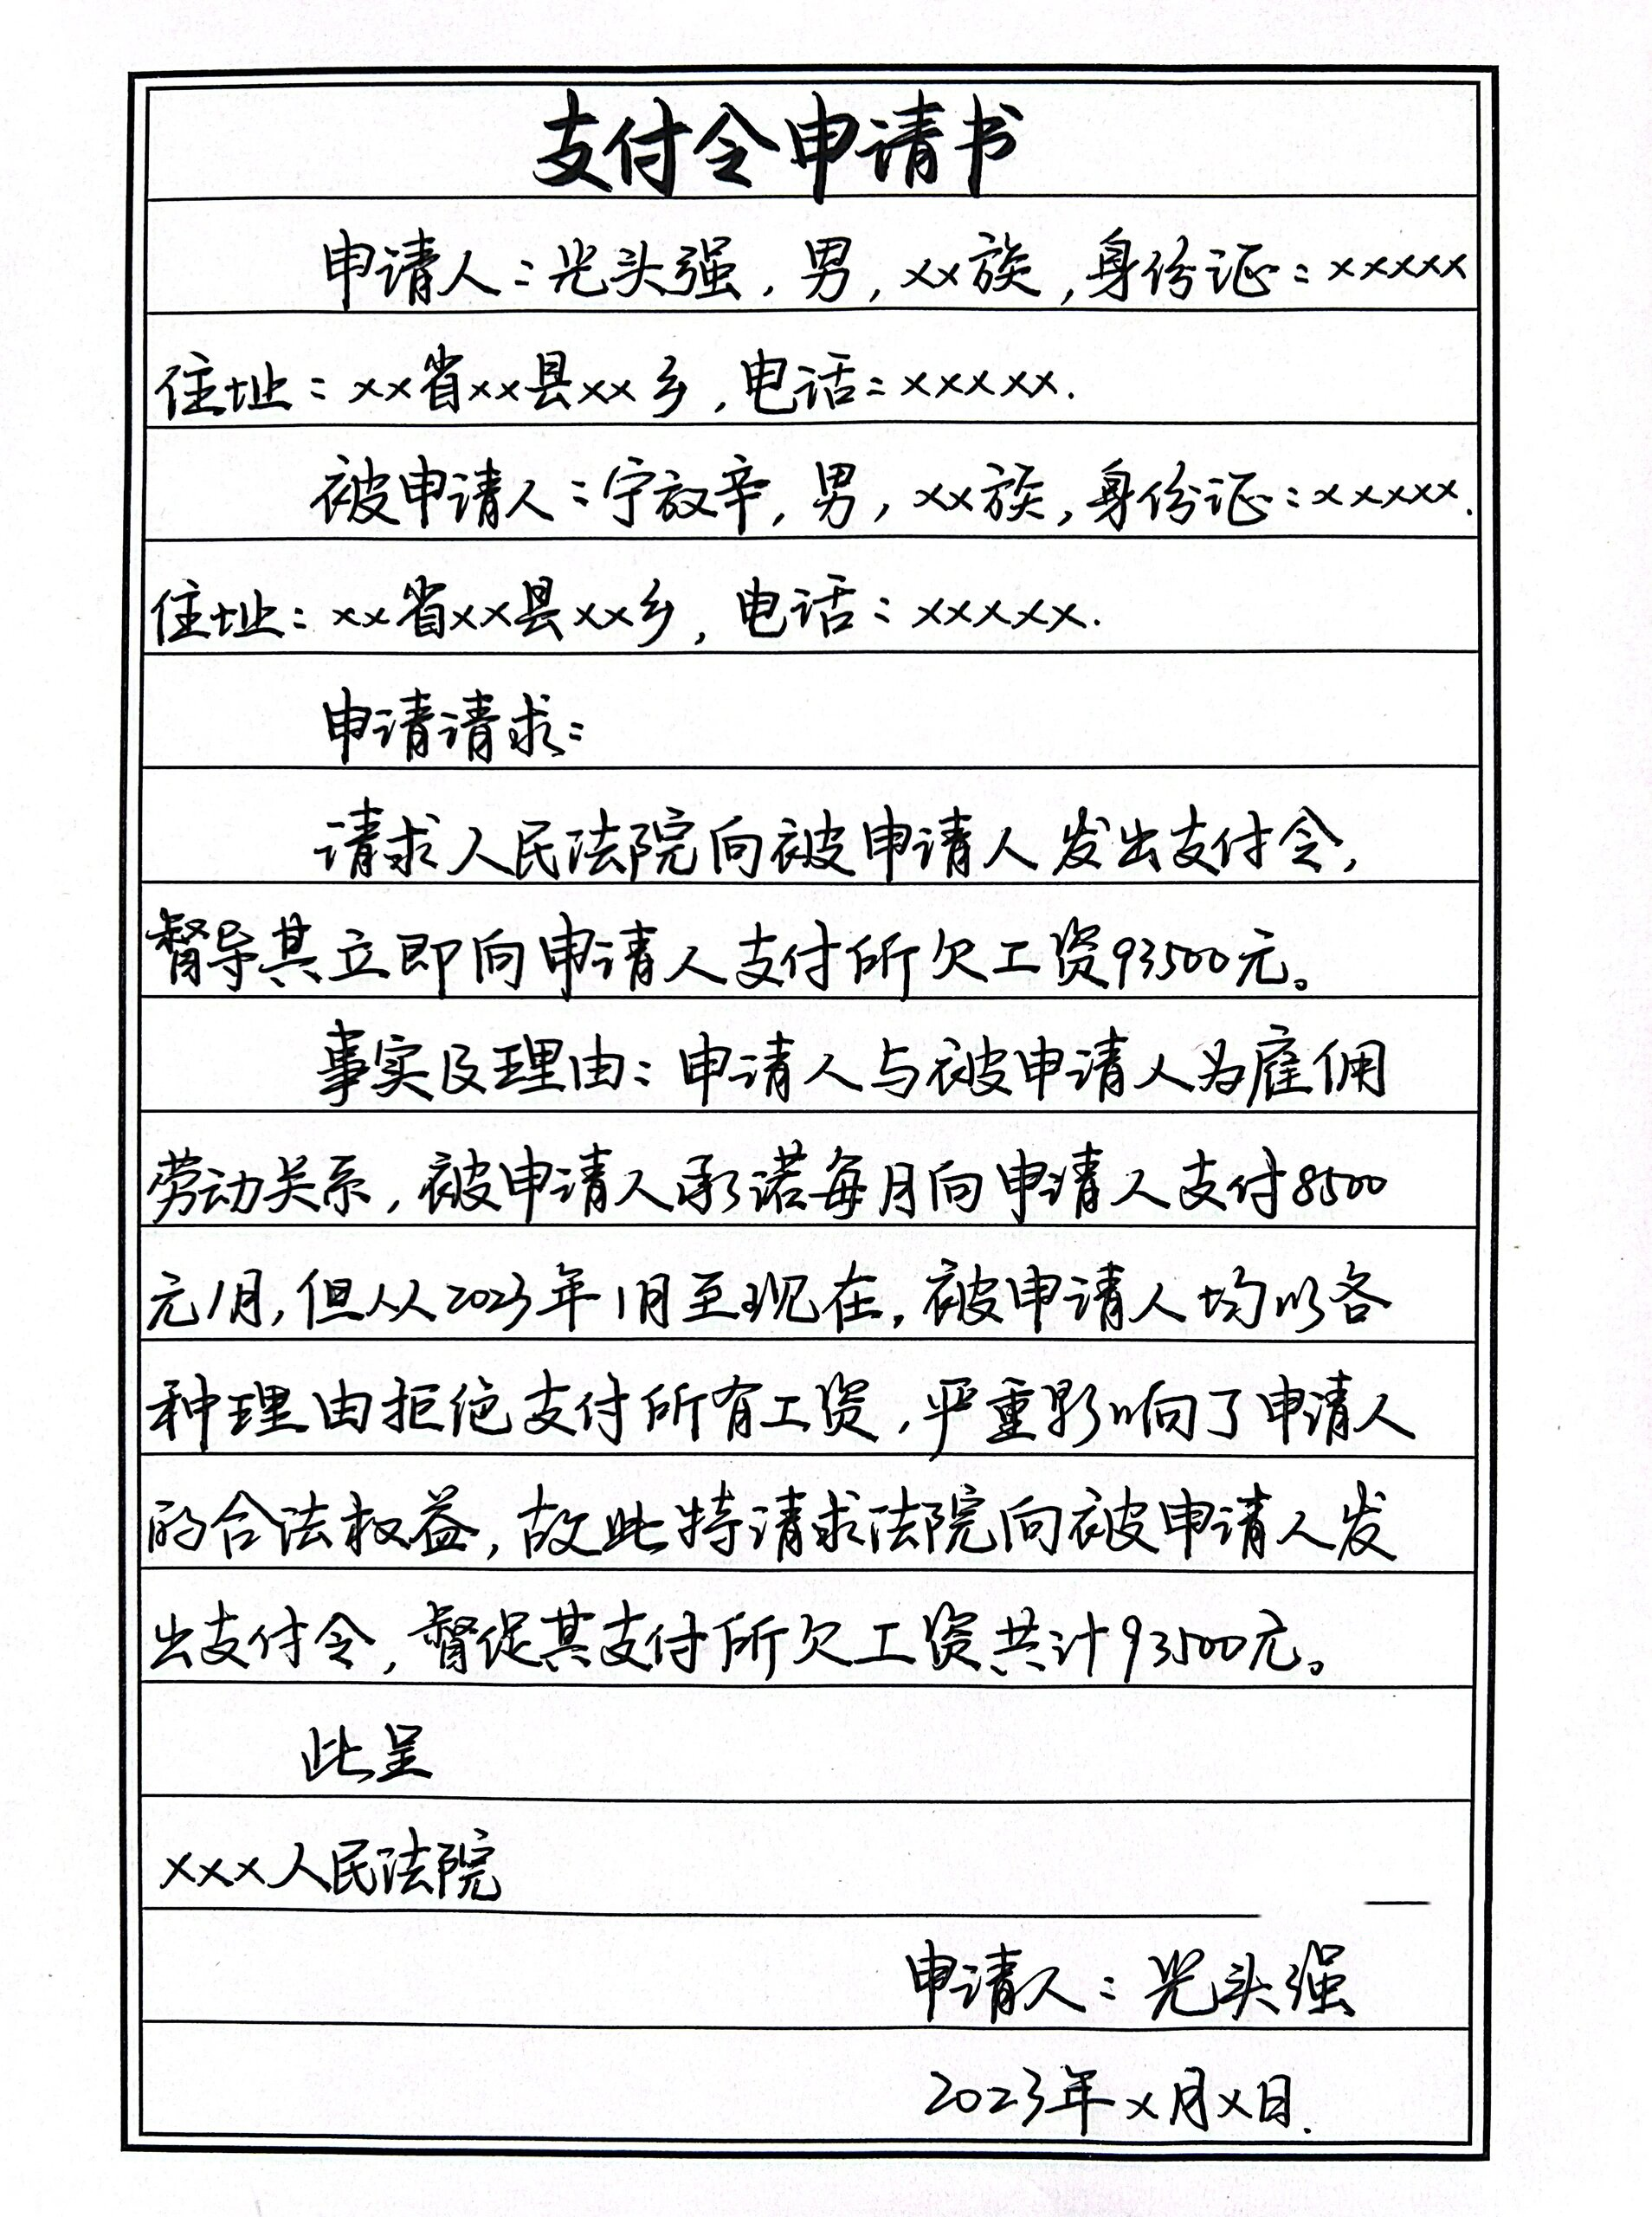 支付令申请书
申请人：光头强，男，xx族，身份证：xxxxx
住址：xx省xx县xx乡，电话：xxxxx.
被申请人：宁放辛，男，xx族，身份证：xxxxx.
住址：xx省xx县xx乡，电话：xxxxx.
申请请求：
请求人民法院向被申请人发出支付令，
督导其立即向申请人支付所欠工资93500元。
事实及理由：申请人与被申请人为雇佣
劳动关系，被申请人承诺每月向申请人支付8500
元/月，但从2023年1月至现在，被申请人均以各
种理由拒绝支付所有工资，严重影响了申请人
的合法权益，故此特请求法院向被申请人发
出支付令，督促其支付所欠工资共计93500元。
此呈
xxx人民法院
申请人：光头强
2023年x月x日.